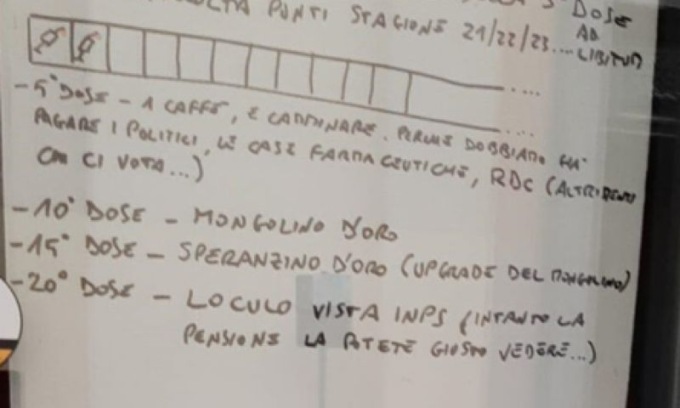 PUNTI STAGIONE 21/22/23.... DOSE
AD
LIBITUM
....
-5° DOSE - 1 CAFFE', E CAMMINARE. PERCHE DOBBIAMO
....
PAGARE I POLITICI, LE CASE FARMACEUTICHE, RDC (ALTRIMENTI
CHI CI VOTA...)
-10° DOSE - MONGOLINO D'ORO
-15° DOSE - SPERANZINO D'ORO (UPGRADE DEL MONGOLINO)
-20° DOSE - LOCULO VISTA INPS (INTANTO LA
PENSIONE LA POTETE GIUSTO VEDERE...)